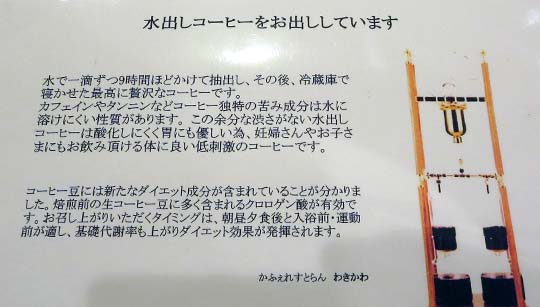 水出しコーヒーをお出ししています
水で一滴ずつ9時間ほどかけて抽出し、その後、冷蔵庫で
寝かせた最高に贅沢なコーヒーです。
カフェインやタンニンなどコーヒー独特の苦み成分は水に
溶けにくい性質があります。この余分な渋さがない水出し
コーヒーは酸化しにくく胃にも優しい為、妊婦さんやお子さ
まにもお飲み頂ける体に良い低刺激のコーヒーです。
コーヒー豆には新たなダイエット成分が含まれていることが分かりま
した。焙煎前の生コーヒー豆に多く含まれるクロロゲン酸が有効で
す。お召し上がりいただくタイミングは、朝昼夕食後と入浴前・運動
前が適し、基礎代謝率も上がりダイエット効果が発揮されます。
かふぇれすとらん わきかわ